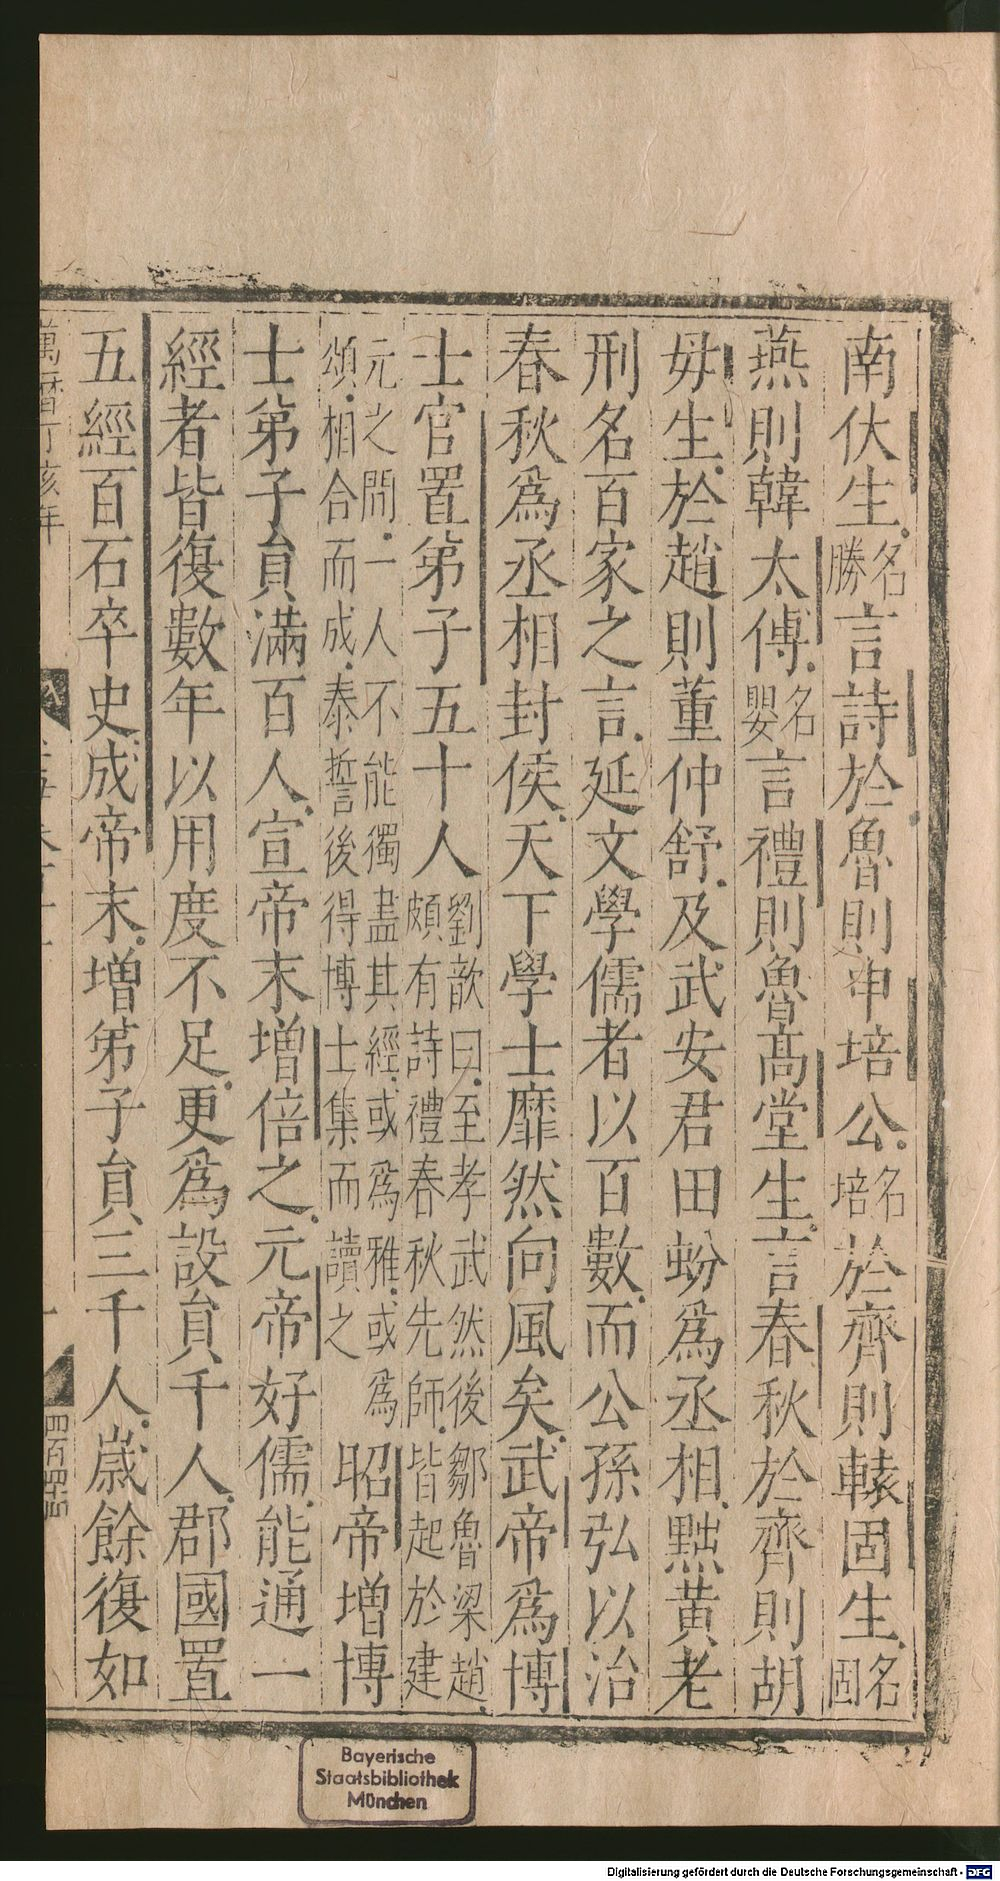 南伏生名勝言詩於魯則申培公名培於齊則轅固生名固
燕則韓太傅名嬰言禮則魯高堂生言春秋於齊則胡
毋生於趙則董仲舒及武安君田蚡爲丞相黜黃老
刑名百家之言延文學儒者以百數而公孫弘以治
春秋爲丞相封侯天下學士靡然向風矣武帝爲博
士官置弟子五十人劉歆曰至孝武然後鄒魯梁趙頗有詩禮春秋先師皆起於建
元之間一人不能獨盡其經或爲雅或爲頌相合而成泰誓後得博士集而讀之昭帝增博
士弟子員滿百人宣帝末增倍之元帝好儒能通一
經者皆復數年以用度不足更爲設員千人郡國置
五經百石卒史成帝末增弟子員三千人歲餘復如
萬曆丁亥年
Bayerische
Staatsbibliothek
München
Digitalisierung gefördert durch die Deutsche Forschungsgemeinschaft - DFG